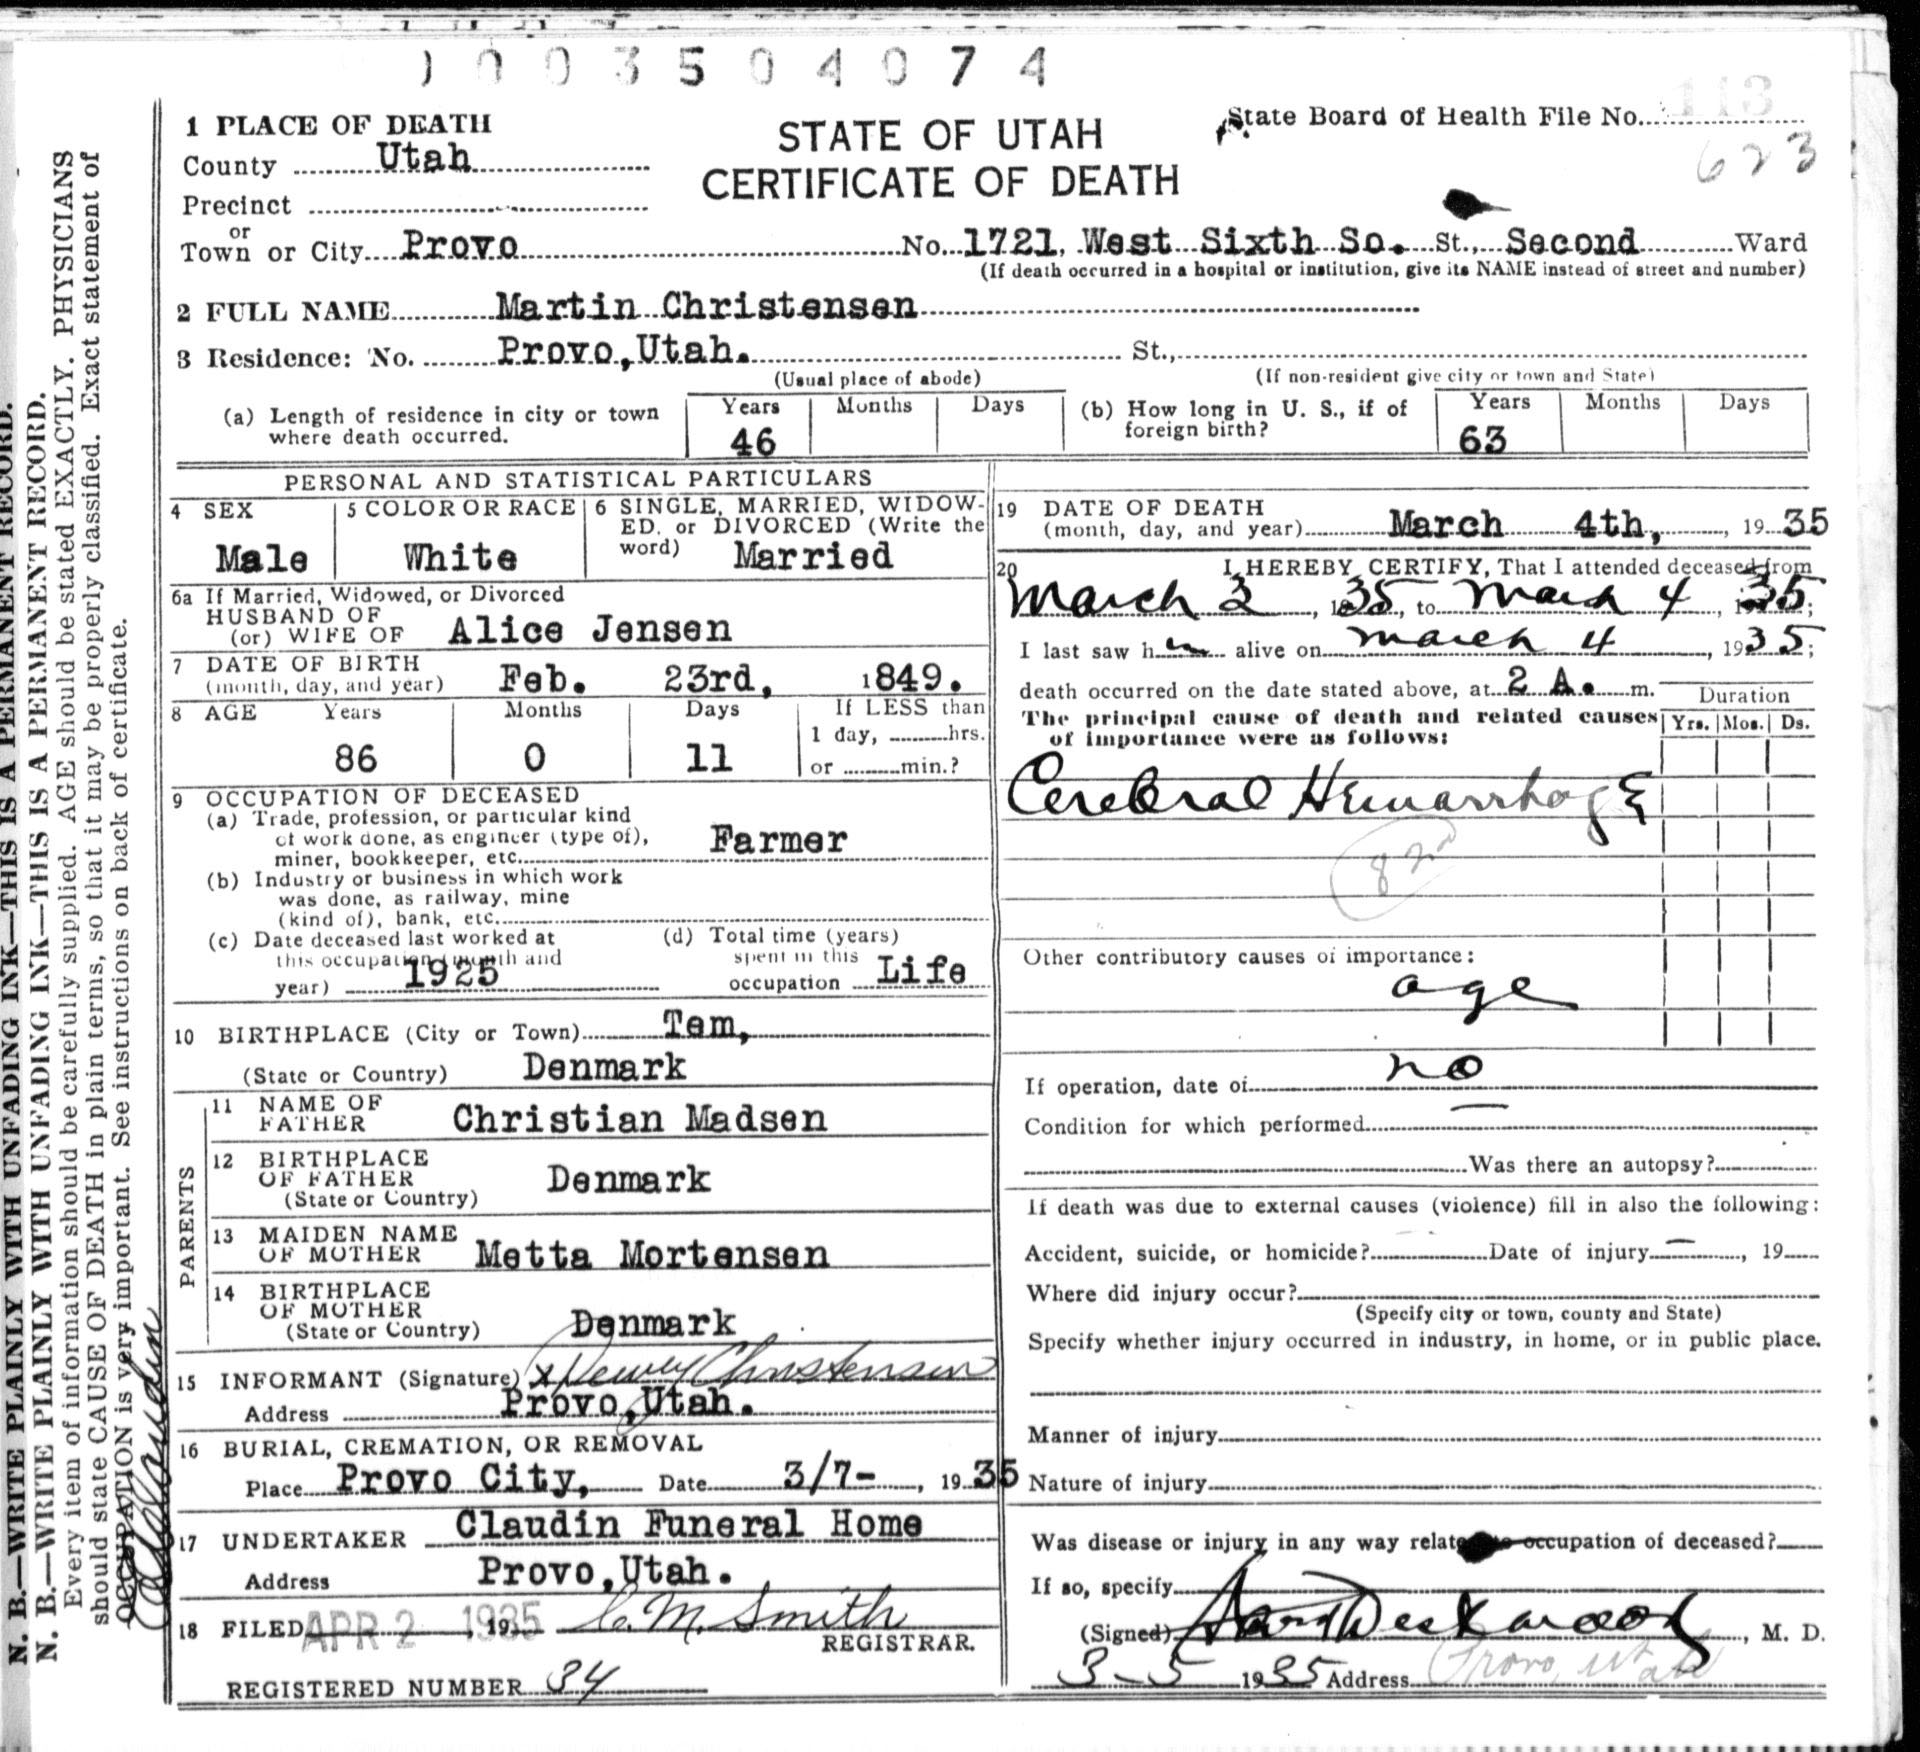 1 0 0 3 5 0 4 0 7 4
113
1 PLACE OF DEATH
STATE OF UTAH
CERTIFICATE OF DEATH
State Board of Health File No.
623
County Utah
Precinct
or
Town or City Provo No. 1721, West Sixth So. St., Second Ward
(If death occurred in a hospital or institution, give its NAME instead of street and number)
2 FULL NAME Martin Christensen
3 Residence: No. Provo, Utah. St.,
(Usual place of abode) (If non-resident give city or town and State)
(a) Length of residence in city or town where death occurred. Years 46 Months Days
(b) How long in U. S., if of foreign birth? Years 63 Months Days
PERSONAL AND STATISTICAL PARTICULARS
4 SEX
Male
5 COLOR OR RACE
White
6 SINGLE, MARRIED, WIDOW-
ED, or DIVORCED (Write the
word) Married
6a If Married, Widowed, or Divorced
HUSBAND OF
(or) WIFE OF Alice Jensen
7 DATE OF BIRTH
(month, day, and year) Feb. 23rd, 1849.
8 AGE Years Months Days If LESS than
1 day, hrs.
86 0 11 or min.?
9 OCCUPATION OF DECEASED
(a) Trade, profession, or particular kind
of work done, as engineer (type of),
miner, bookkeeper, etc. Farmer
(b) Industry or business in which work
was done, as railway, mine
(kind of), bank, etc.
(c) Date deceased last worked at
this occupation (month and
year) 1925
(d) Total time (years)
spent in this
occupation Life
10 BIRTHPLACE (City or Town) Tem,
(State or Country) Denmark
PARENTS
11 NAME OF
FATHER Christian Madsen
12 BIRTHPLACE
OF FATHER
(State or Country) Denmark
13 MAIDEN NAME
OF MOTHER Metta Mortensen
14 BIRTHPLACE
OF MOTHER
(State or Country) Denmark
15 INFORMANT (Signature) x Dewey Christensen
Address Provo, Utah.
16 BURIAL, CREMATION, OR REMOVAL
Place Provo City, Date 3/7-, 1935
17 UNDERTAKER Claudin Funeral Home
Address Provo, Utah.
18 FILED APR 2 1935 19 C. M. Smith
REGISTRAR.
REGISTERED NUMBER 84
19 DATE OF DEATH
(month, day, and year) March 4th, , 19 35
20 I HEREBY CERTIFY, That I attended deceased from
March 3, 1935, to March 4, 1935;
I last saw him alive on march 4, 1935;
death occurred on the date stated above, at 2 A. m.
Duration
The principal cause of death and related causes
of importance were as follows:
Yrs. Mos. Ds.
Cerebral Hemarrhage
82
Other contributory causes of importance:
age
If operation, date of no
Condition for which performed
Was there an autopsy?
If death was due to external causes (violence) fill in also the following:
Accident, suicide, or homicide? Date of injury , 19
Where did injury occur?
(Specify city or town, county and State)
Specify whether injury occurred in industry, in home, or in public place.
Manner of injury
Nature of injury
Was disease or injury in any way related to occupation of deceased?
If so, specify
(Signed) , M. D.
3-5 1935 Address Provo, Utah
N. B.—WRITE PLAINLY WITH UNFADING INK—THIS IS A PERMANENT RECORD.
N. B.—WRITE PLAINLY WITH UNFADING INK—THIS IS A PERMANENT RECORD.
Every item of information should be carefully supplied. AGE should be stated EXACTLY. PHYSICIANS
should state CAUSE OF DEATH in plain terms, so that it may be properly classified. Exact statement of
OCCUPATION is very important. See instructions on back of certificate.